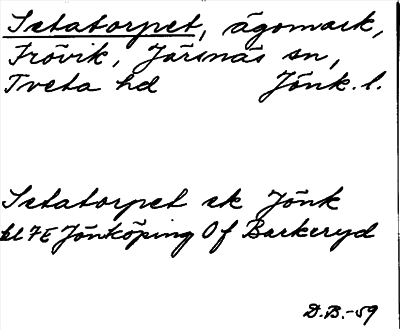 Sxtatorpet, ägomark,
Frövik, Järsnäs sn,
Tveta hd Jönk. l.
Sxtatorpet ek Jönk
bl 7E Jönköping Of Barkeryd
D.B.-59